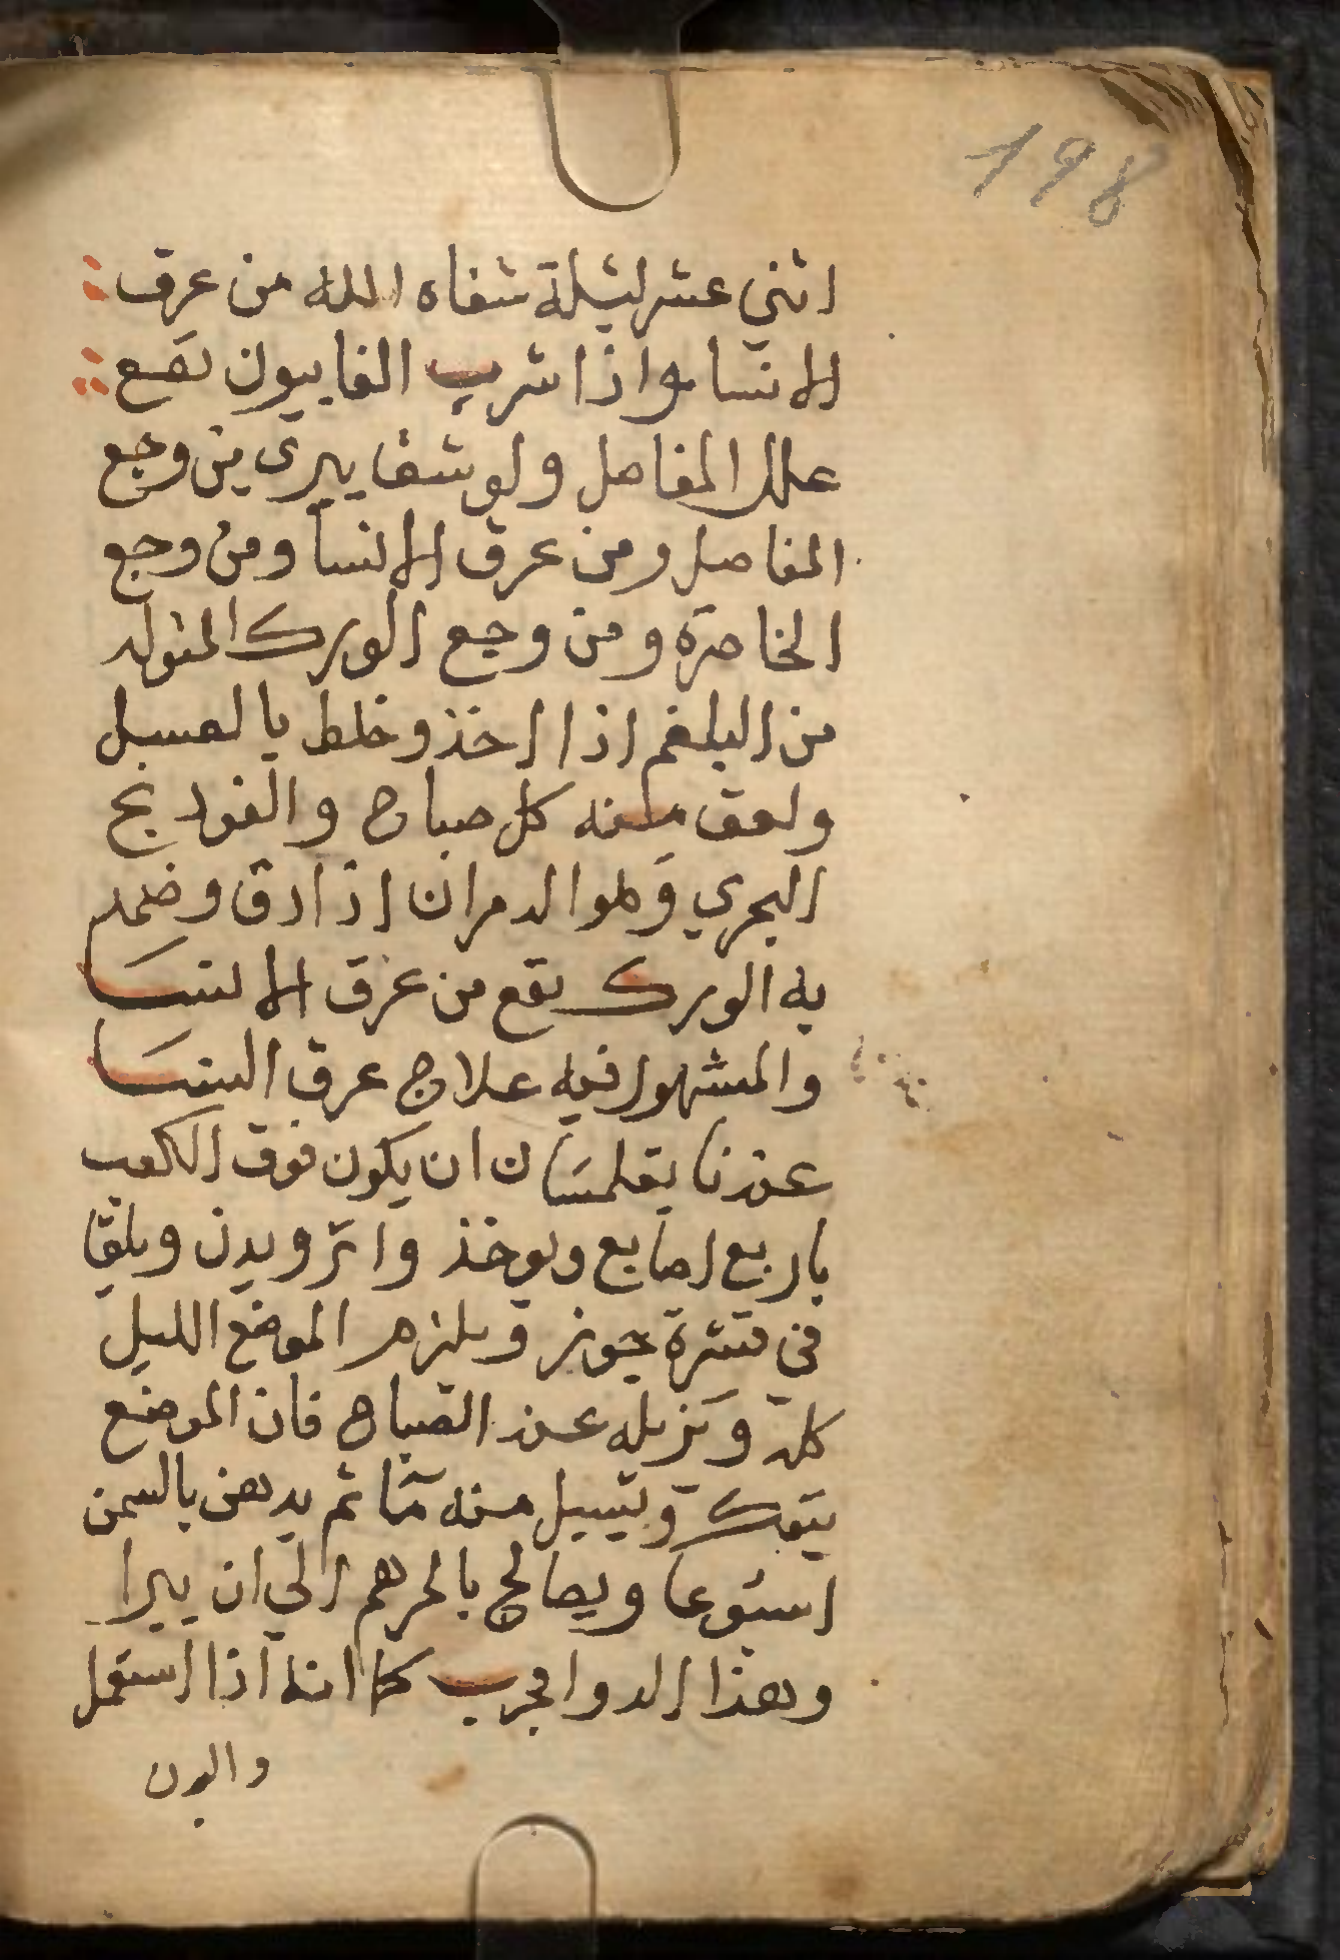 198
اثني عشر ليلة شفاه الله من عرق
الانسا واذا شرب الفابيون نفع
علل المفاصل ولو شفا يبرى من وجع
المفاصل ومن عرق الانسا ومن وجع
الخاصرة ومن وجع الورك المتولد
من البلغم اذا اخذ وخلط بالعسل
ولعق منه كل صباح والفودنج
البحري وهوا الدمران اذا دق وضمد
به الورك نفع من عرق الانسا
والمشهور فيه علاج عرق النسا
عندنا بتلمسان ان يكون فوق الكعب
باربع اصابع ويوخذ واتزويدن ويلقا
في قشرة جوز ويلزم الموضع الليل
كله ويزيله عند الصباح فان الموضع
يتفك ويسيل منه ما ثم يدهن بالسمن
اسبوعا ويعالج بالمرهم الي ان يبرا
وهذا الدوا مجرب كما انه اذا استعمل